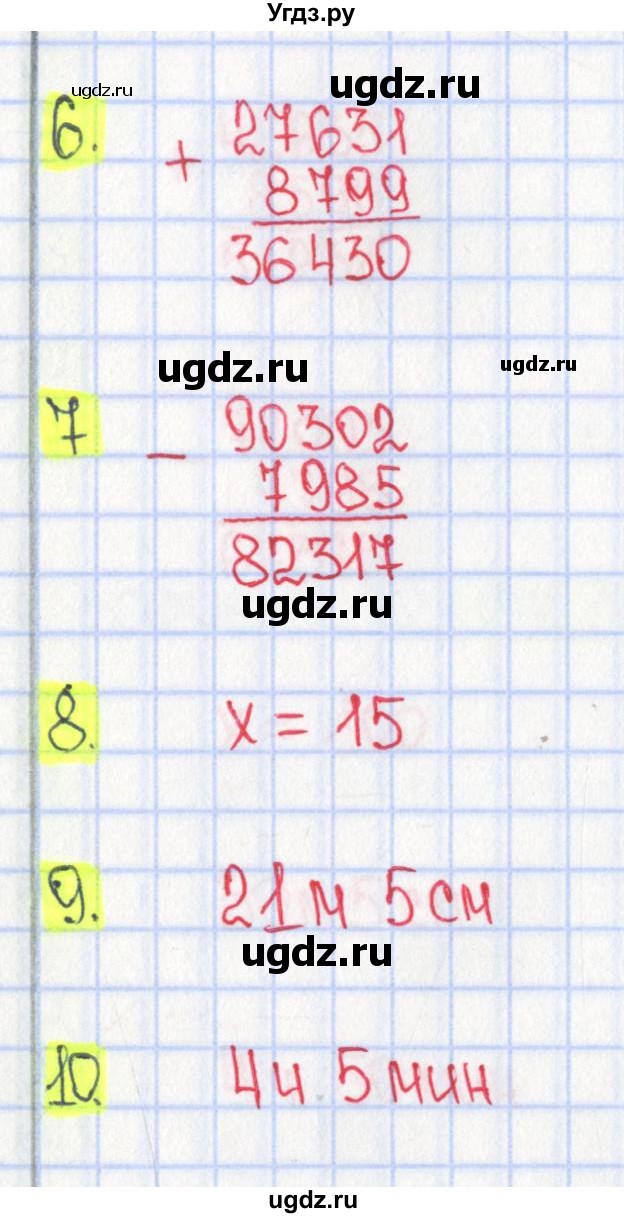 Угдз.ру
ugdz.ru
ugdz.ru
6. + 27631
8799
36430
ugdz.ru
ugdz.ru
7 − 90302
7985
82317
ugdz.ru
8. x = 15
9. 21 м 5 см
ugdz.ru
10. 4 ч 5 мин
ugdz.ru